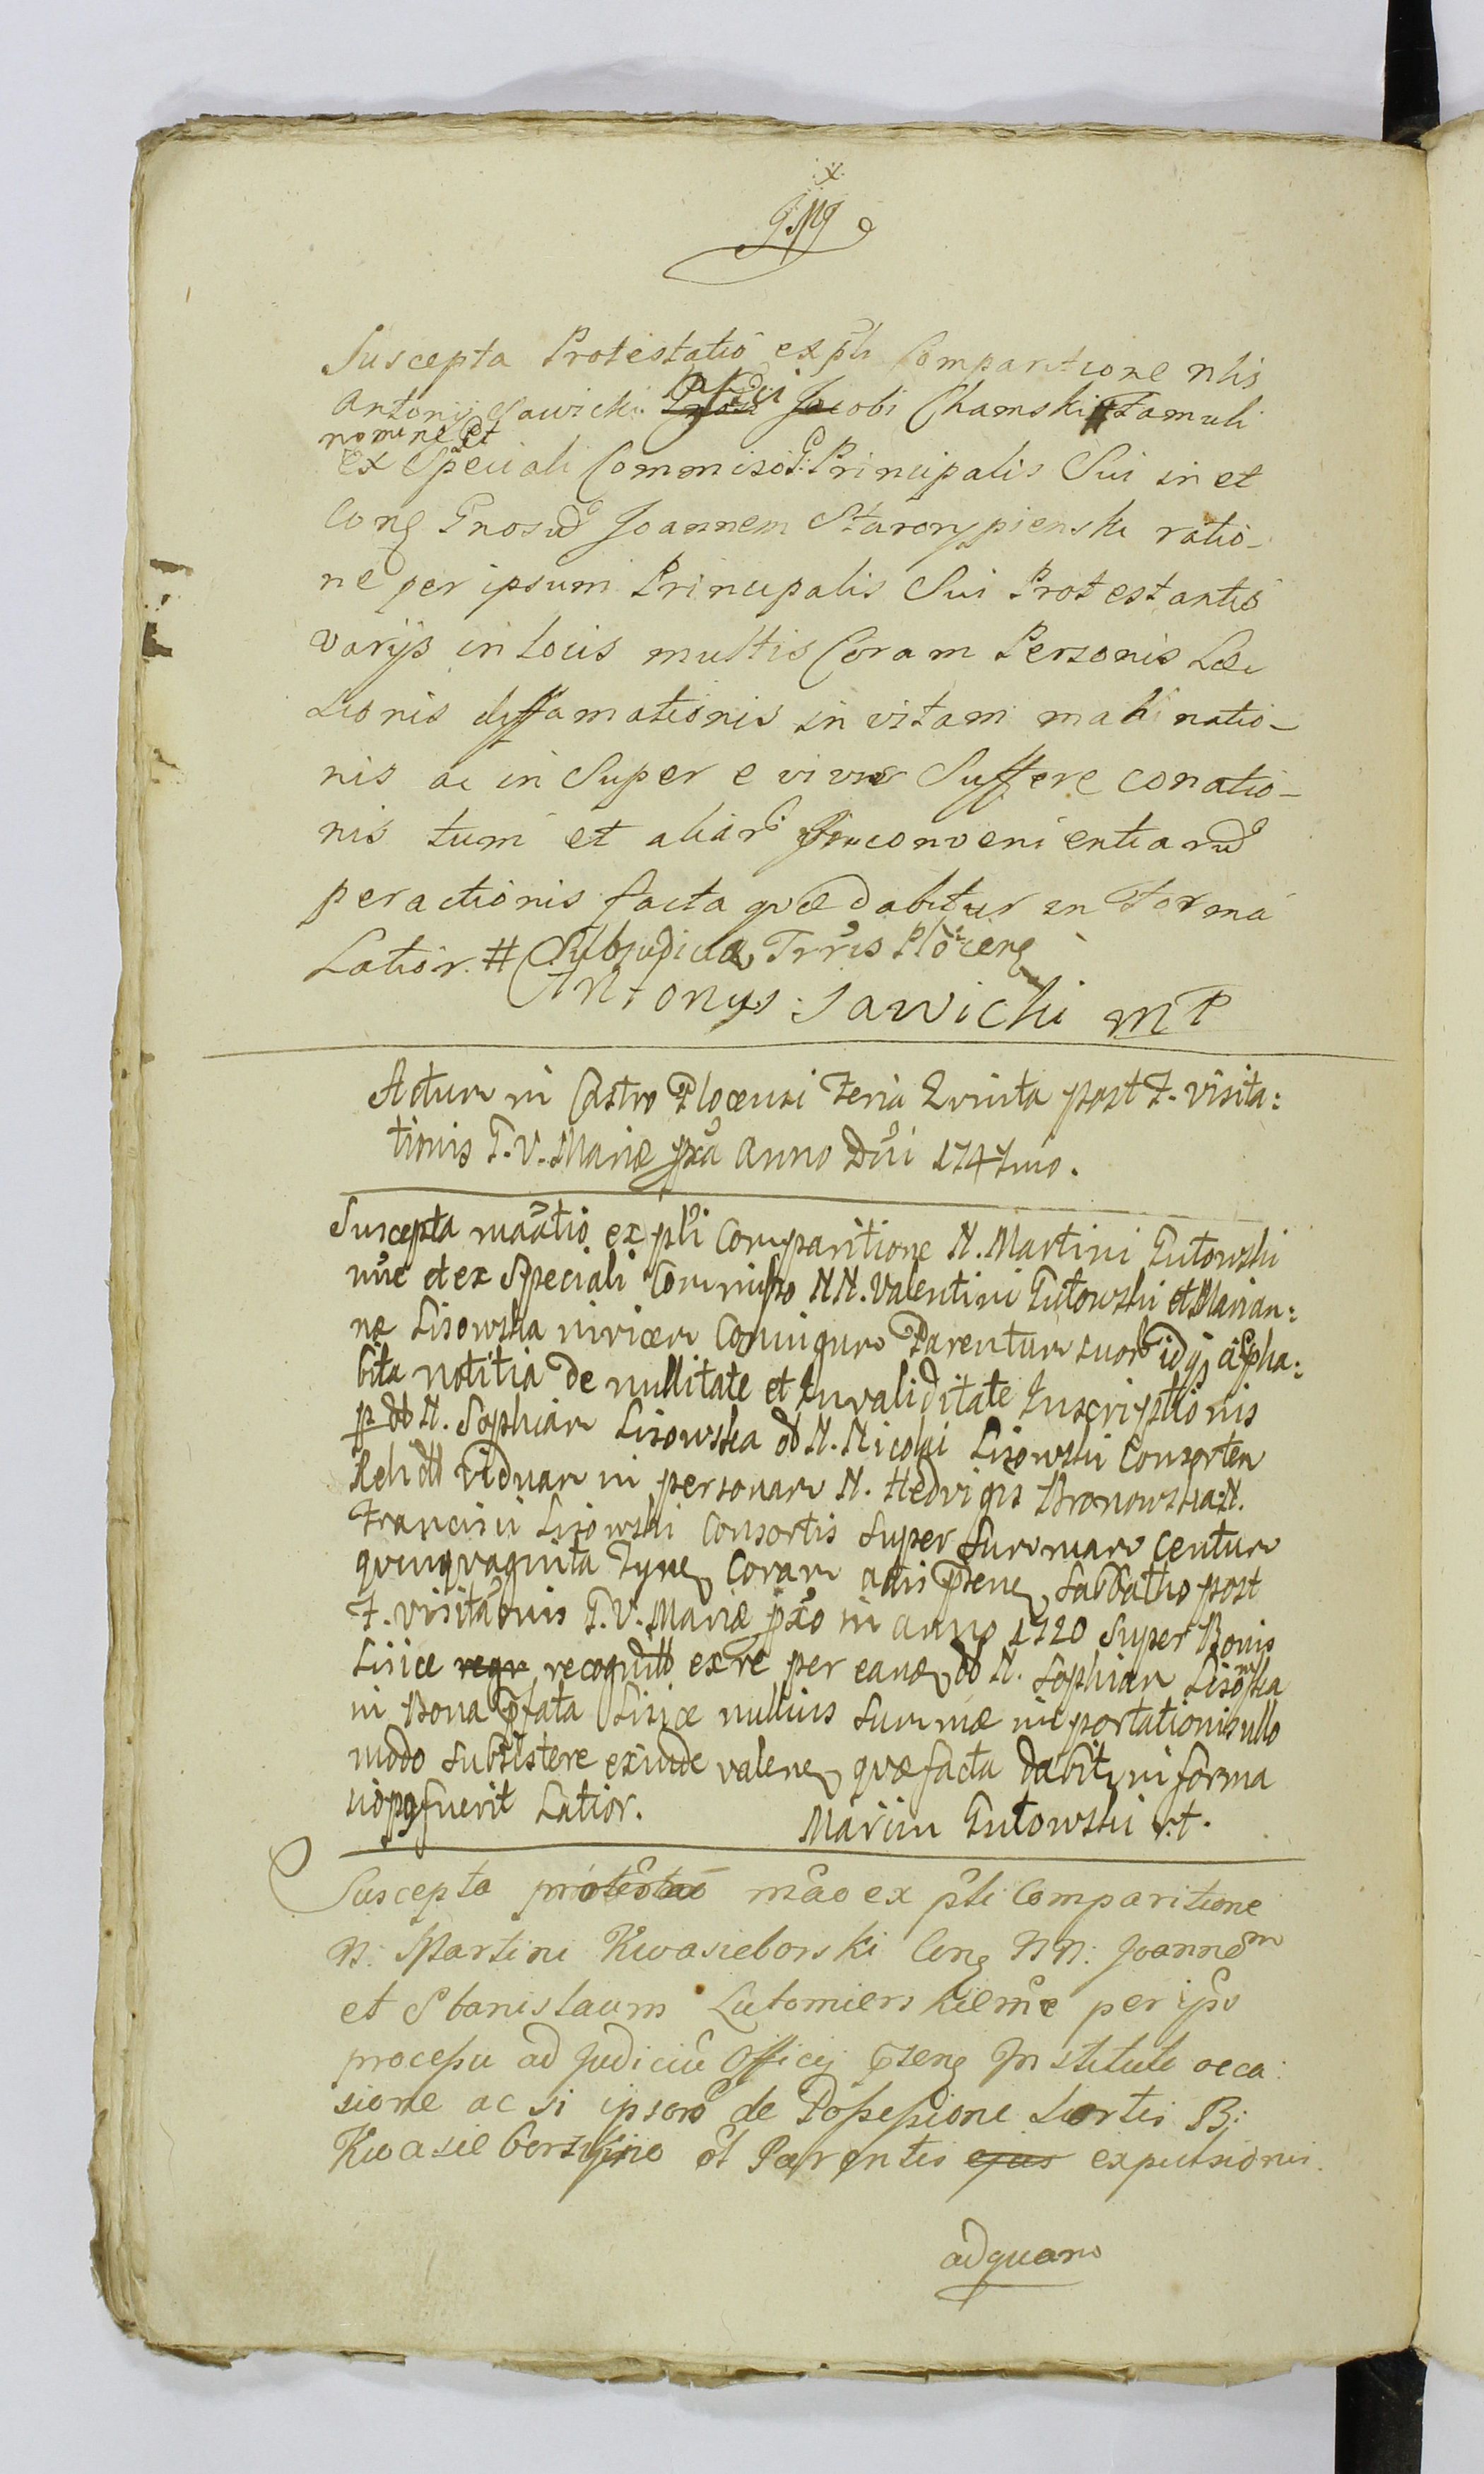 x
Suscepta Protestatio ex pñti Comparitione Nlis
Antonij Sawicki Jacobi Chamski # Famuli
nomine et
ex Speciali Commiso G: Principalis Sui in et
Conz Gnosũ Joannem Staroryppienski ratio-
ne per ipsum Principalis Sui Protestantis
varijs in locis multis Coram Personis Læ
sionis diffamationis in vitam machinatio-
nis ac in Super e vivis Suffere conatio-
nis tum et aliar Inconvenientiarũ
peractionis facta quæ dabitur in Forma
Latior. # Subjudicis Trris Plocenz
Antonys: Sawicki mP
Actum in Castro Plocensi Feria Quinta post F. visita:
tionis B.V. Mariæ pxã Anno Dñi 1747mo.
Suscepta mãtio ex pñti Comparitione N. Martini Gutowski
nõe et ex Speciali Commisso NN. Valentini Gutowski et Marian:
næ Lisowska invicem Conjugum Parentum suor idqz
bita notitia de nullitate et Invaliditate Inscriptionis
p N. Sophiam Lisowska N. Nicolai Lisowski Consortem
Relictã viduam in personam N. Hedvigis Bronowska: N.
Francisci Lisowski Consortis super summam centum
quinquaginta Tynf Coram actis pñtenz Sabbatho post
F. visitãonis B.V. Mariæ pxõ in anno 1720 super Bonis
Lisice regr recognit ex re per eanđ N. Sophiam Lisowska
in Bona pfata Lisice nullius summæ importationis ullo
modo subsistere exinde valenz quæ facta dabitr in forma
si opg fuerit Latior.
Marcin Gutowski
Suscepta protestao mãao ex pñti Comparitione
N: Martini Kwasieborski Conz NN: Joannem
et Stanislaum Lutomierskie per ipso
processu ad Judiciũ Officij Instituti occa:
sione ac si ipsoro de Possessione Sortis B:
Kwasieborzyno et Parentis ejus expulsionis.
adquam